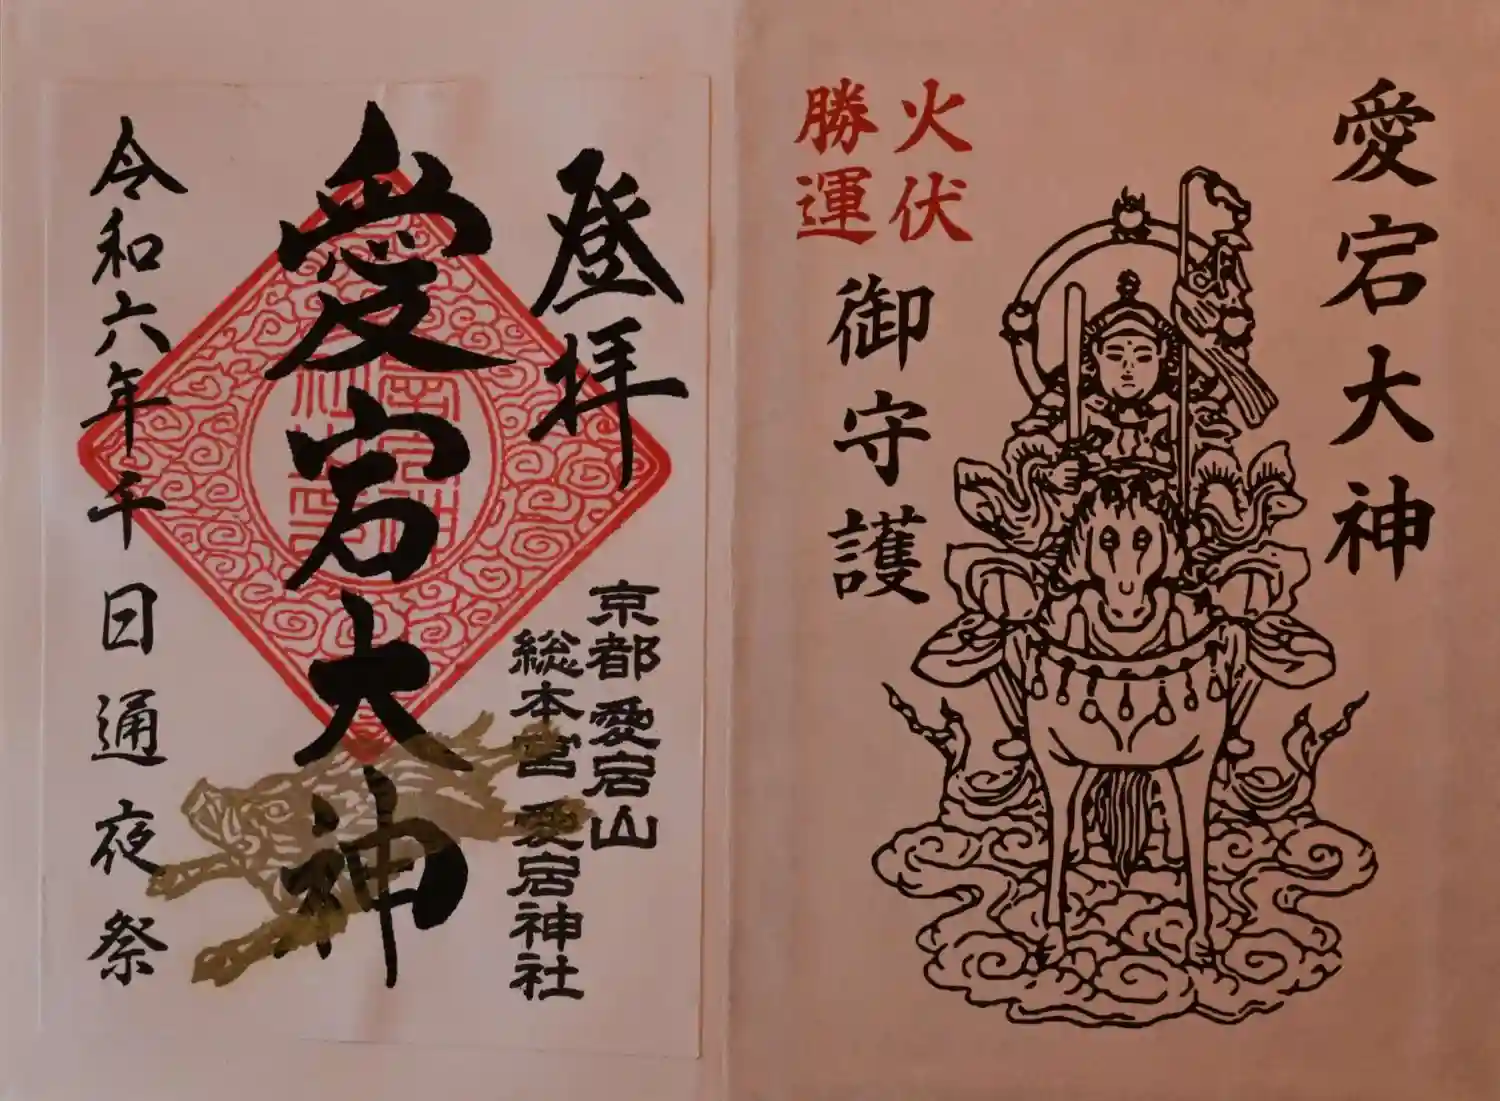 愛宕大神
火伏
勝運
御守護
登拝
京都 愛宕山
総本宮 愛宕神社
愛宕大神
令和六年千日通夜祭